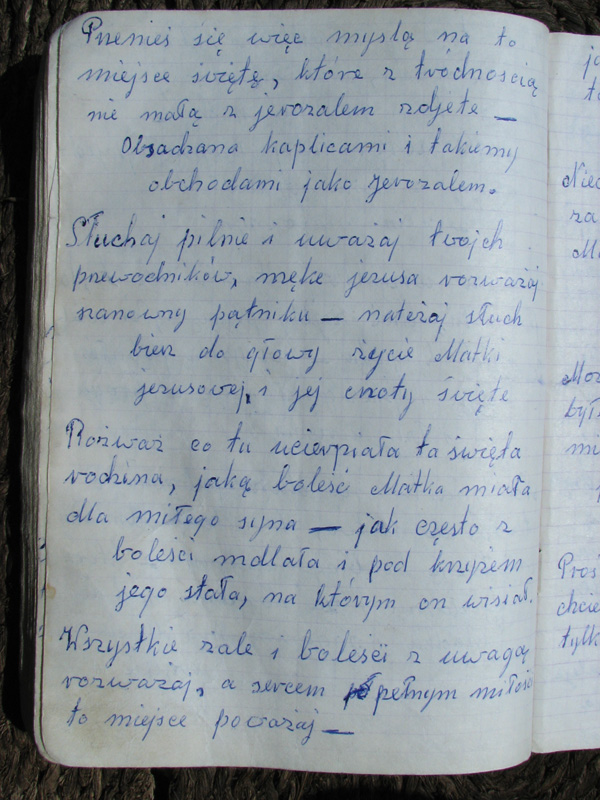 Przenieś się więc myslą na to
miejsce święte, które z tródnością
nie małą z jerozalem zdjete —
Obsadzana kaplicami i takiemy
obchodami jako jerozalem.
Słuchaj pilnie i uważaj twojch
przewodników, mękę jezusa rozważaj
szanowny pątniku — natężaj słuch
bierz do głowy życie Matki
jezusowej, i jej cnoty święte
Rozważ co tu ucierpiała ta święta
rodzina, jaką boleść Matka miała
dla miłego syna — jak często z
boleści mdlała i pod krzyżem
jego stała, na którym on wisiał.
Wszystkie żale i boleści z uwagą
rozważaj, a sercem pełnym miłości
to miejsce poważaj —
ja
to
Nied
za
Ma
Moz
był
mi
Proś
chcie
tylk